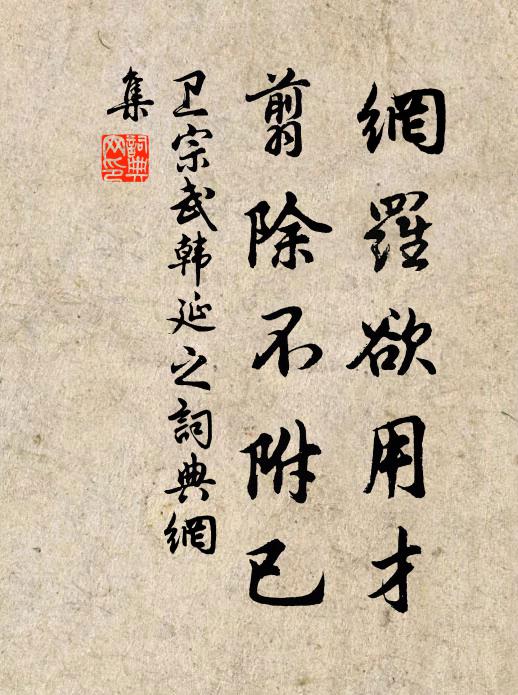 網羅欲用才
翦除不附已
卫宗武韩延之詞典網
集
詞典
网印